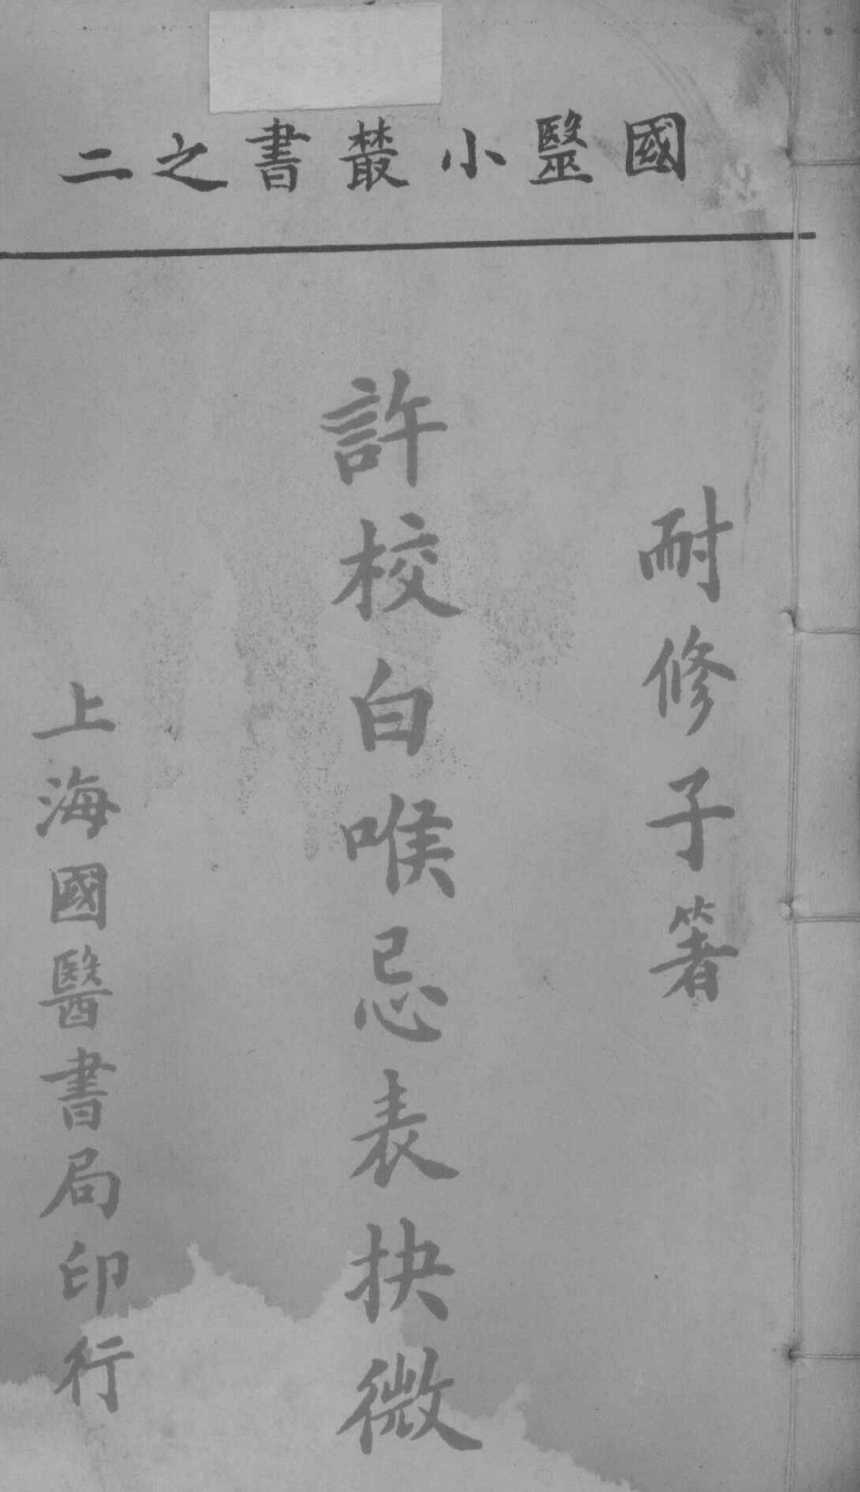 國毉小叢書之二
耐修子著
許校白喉忌表抉微
上海國醫書局印行